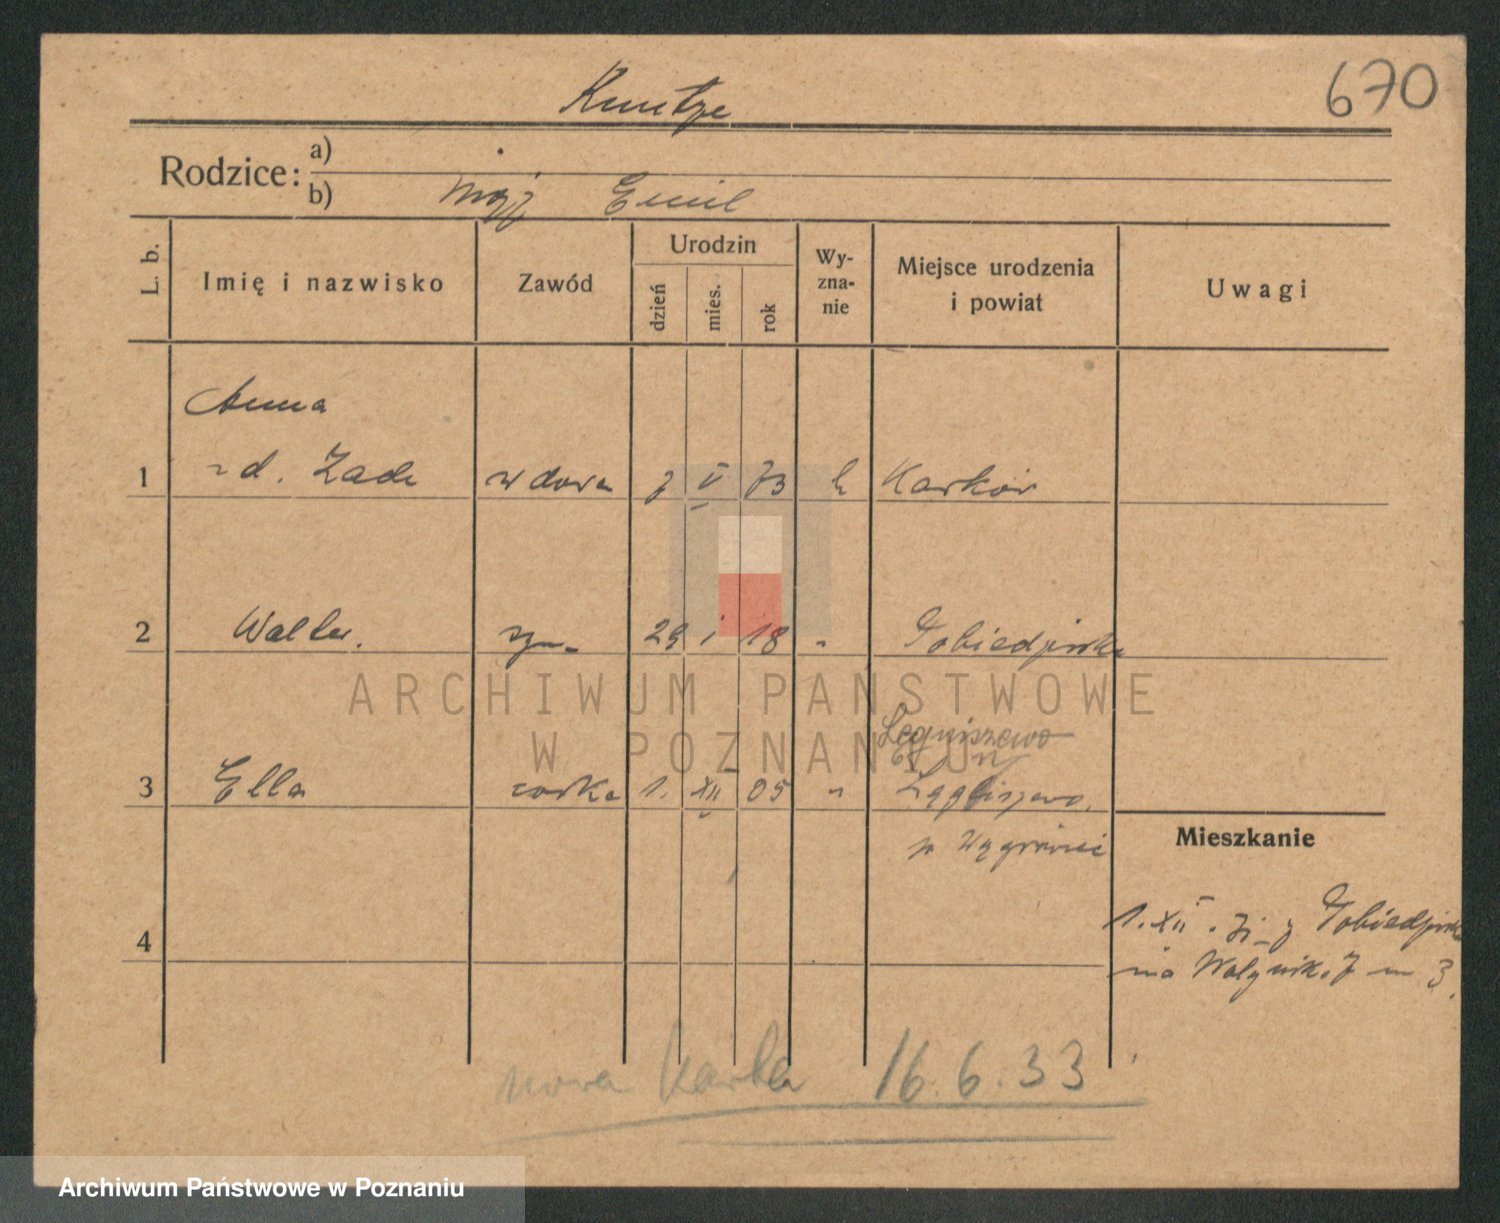 670
Kuntze
Rodzice:
a)
b) mąż Emil
L. b.
Imię i nazwisko
Zawód
Urodzin
dzień
mies.
rok
Wy-
zna-
nie
Miejsce urodzenia
i powiat
Uwagi
Anna
1 z d. Zade wdowa 7 V 73 Karków
2 Walter. syn 29 I 18 " Pobiedziska
Legniszewo
3 Ella córka 1. XII 05 "
p Wągrowiec
Mieszkanie
4
1. XII. 31 z Pobiedzisk
na 7 m 3.
nowa karta 16.6.33
ARCHIWUM PAŃSTWOWE
W POZNANIU
Archiwum Państwowe w Poznaniu